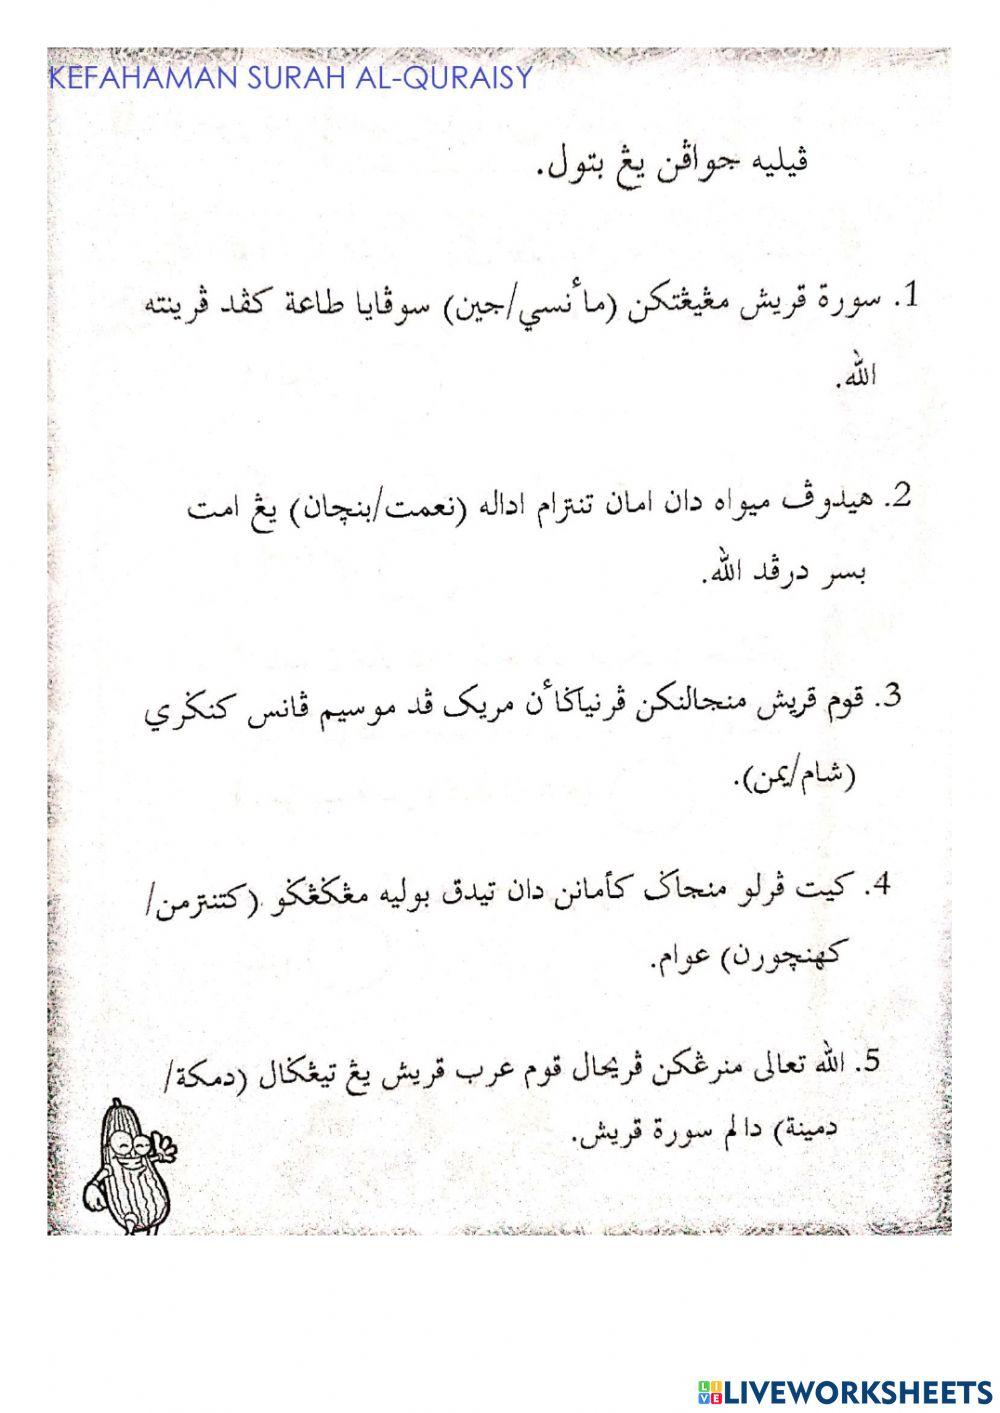 KEFAHAMAN SURAH AL-QURAISY
ڤيليه جواڤن يڠ بتول.
1. سورة قريش مڠيڠتكن (مأنسي/جين) سوڤايا طاعة كڤد ڤرينته
الله.
2. هيدوڤ ميواه دان امان تنترام اداله (نعمت/بنچان) يڠ امت
بسر درڤد الله.
3. قوم قريش منجالنكن ڤرنياݢاأن مريک ڤد موسيم ڤانس كنݢري
(شام/يمن).
4. كيت ڤرلو منجاݢ كأمانن دان تيدق بوليه مڠݢڠݢو (كتنترمن/
كهنچورن) عوام.
5. الله تعالى منرڠكن ڤريحال قوم عرب قريش يڠ تيڠݢال (دمكة/
دمينة) دالم سورة قريش.
LIVEWORKSHEETS